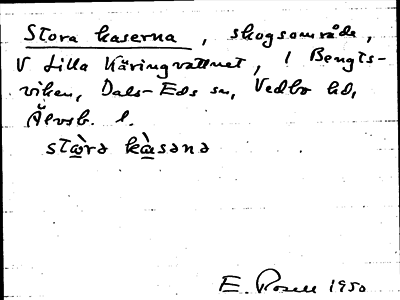 Stora kaserna, skogsområde,
V Lilla Käringvattnet, 1 Bengts-
viken, Dals-Eds sn, Vedbo hd,
Älvsb. l.
stɑ̀rə kɑ̀sənə
E. Rosell 1950